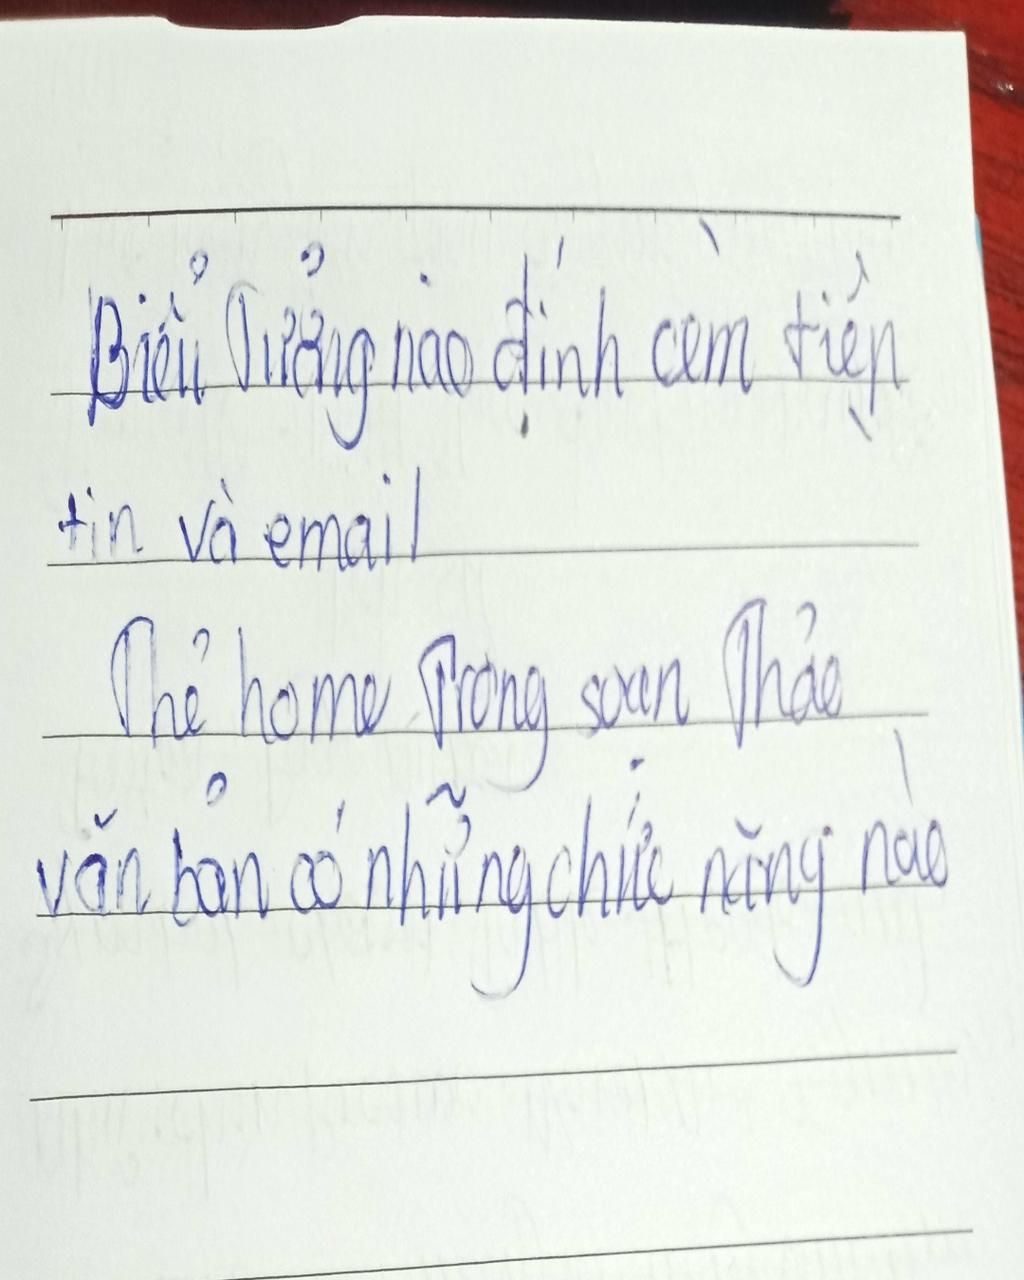 Biểu Tưởng nào đính cèm tiệp
tin và email
Thẻ home Trong soạn Thảo
văn bản có những chức năng nào